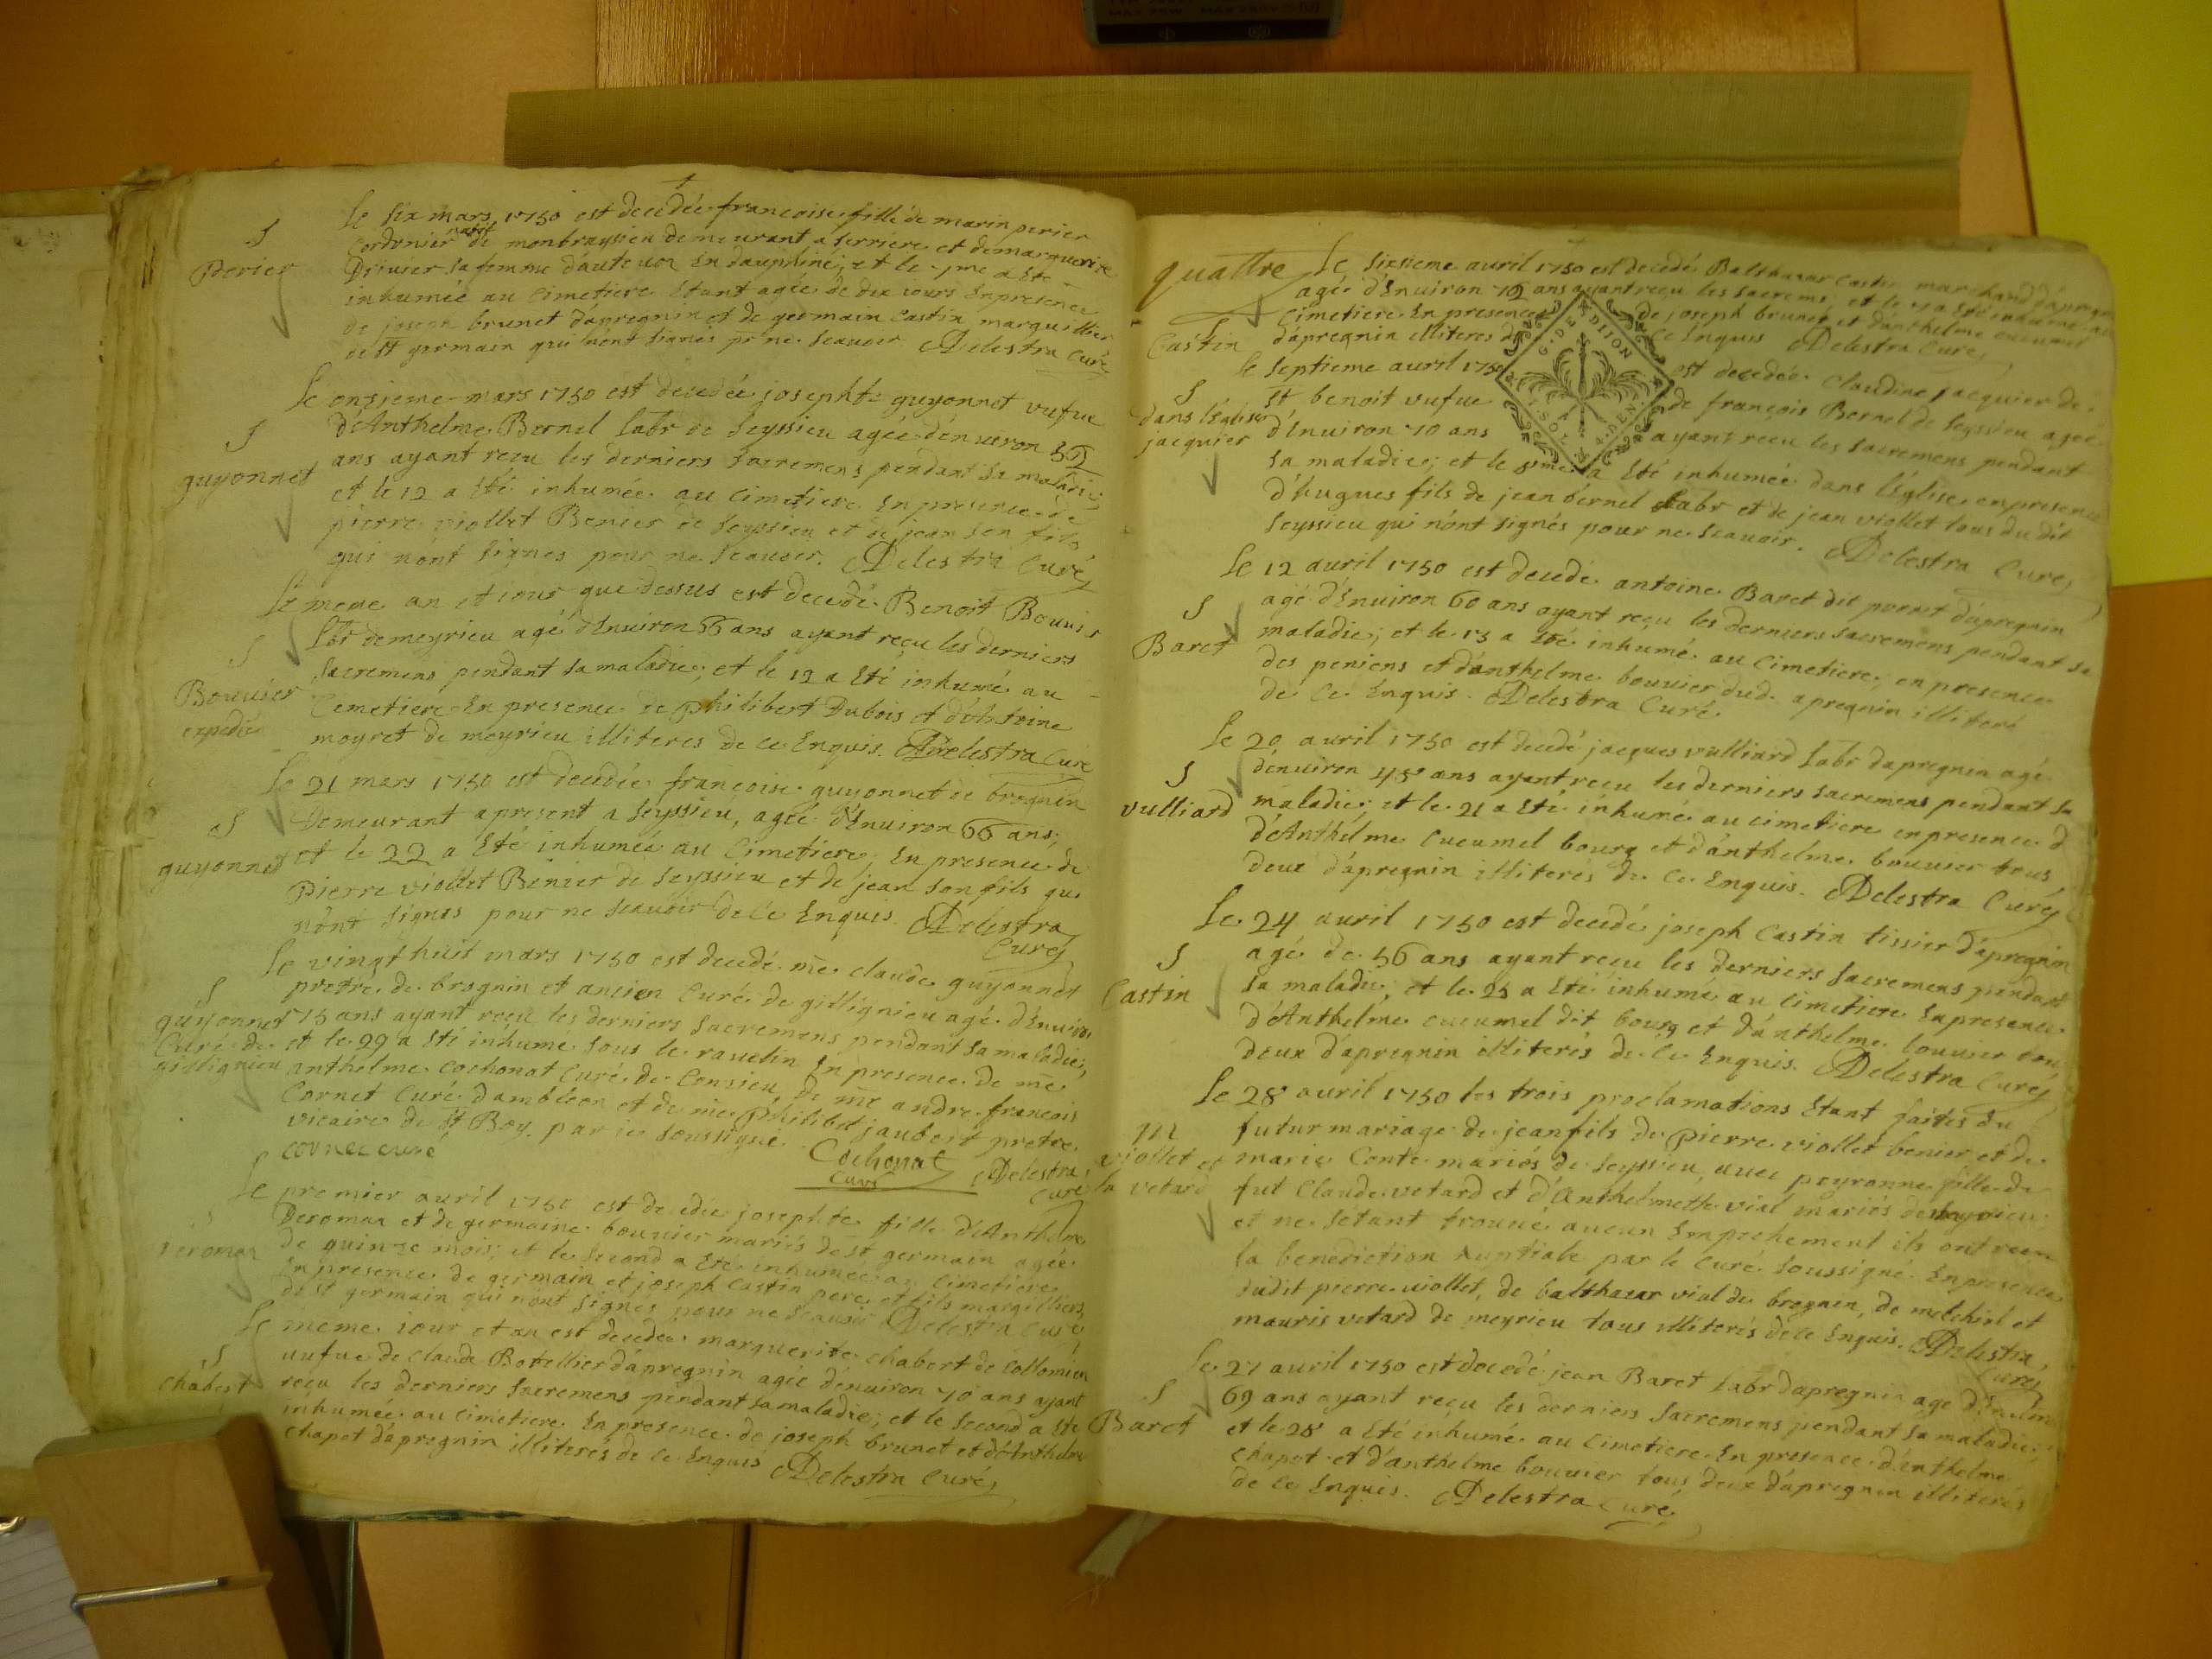 S
Perier
Le six mars 1750 est decedée francoise fille de marin perier
Cordonier natif de monbrayssieu demeurant a serriere et de marguerite
sa femme d'autevoz En dauphiné, et le 7me a Eté
inhumée au Cimetiere Etant agée de dix iours En presence
de joseph brunet d'apregnin et de germain Castin marguillier
de St germain qui n'ont signés pr ne scavoir Delestra Curé
S
guyonnet
Le onzieme mars 1750 est decedée josephte guyonnet vufue
d'Anthelme Bernel Labr de Seyssieu agée d'enuiron 52
ans ayant recu les derniers Sacremens pendant sa maladie;
et le 12 a Eté inhumée au Cimetiere En presence de
pierre viollet Benier de Seyssieu et de jean son fils
qui n'ont signes pour ne scauoir. Delestra Curé
S
Bouuier
expedié
Le meme an et iour que dessus est decedé Benoit Bouuier
Labr de meyrieu agé d'Enuiron 66 ans ayant reçu les derniers
Sacremens pendant sa maladie; et le 12 a Eté inhumé au
Cemetiere En presence de philibert Dubois et d'Antoine
moyret de meyrieu illiteres de ce Enquis. Delestra Curé
S
guyonnet
Le 21 mars 1750 est decedée françoise guyonnet de brognin
Demeurant apresent a Seyssieu, agée d'Enuiron 66 ans;
et le 22 a Eté inhumée au Cimetiere; En presence de
Pierre viollet Benier de Seyssieu et de jean son fils qui
n'ont signes pour ne scauoir de ce Enquis. Delestra
Curé
S
guyonnet
Curé de
gillignieu
Le vingt huit mars 1750 est decedé me claude guyonnet
pretre de brognin et ancien Curé de gillignieu agé d'Enuiron
75 ans ayant reçu les derniers Sacremens pendant sa maladie;
et le 29 a Eté inhumé sous le ravelin En presence de me
anthelme Cochonat Curé de Conzieu, de me andre francois
Cornet Curé d'ambleon et de me philibet jaubert pretre
vicaire de St Boy. par ie soussigné. Cochonat
curé
Delestra
Curé
cornet curé
Deromaz
Le premier avril 1750 est decedée josephte fille d'Anthelme
Deromaz et de germaine bouuier mariés de St germain agée
de quinze mois; et le second a Eté inhumée au Cimetiere
En presence de germain et joseph Castin pere et fils margilliers
de St germain qui n'ont signes pour ne scauoir Delestra Curé
S
chabert
Le meme iour et an est decedée marguerite chabert de Collomieu
vufue de Claude Botellier d'apregnin agée d'enuiron 70 ans ayant
reçu les derniers Sacremens pendant sa maladie; et le Second a Eté
inhumée au Cimetiere En presence de joseph brunet et d'Anthelme
Chapot d'apregnin illiterés de ce Enquis Delestra Curé
quattre
Castin
Le Sixsieme avril 1750 est decedé Balthazar Castin marchand d'apregnin
agé d'Enuiron 72 ans ayant reçu les Sacrems; et le 7 a Eté inhumé au
Cimetiere En presence de joseph brunet et d'anthelme cucumel
d'apregnin illiteres de ce Enquis Delestra Curé
G. DE DIJON
S
dans l'Eglise
jacquier
Le Septieme avril 1750 est decedée Claudine jacquier de
St benoit vufue de françois Bernel de Seyssieu agée
d'Enuiron 70 ans ayant reçu les Sacremens pendant
sa maladie; et le 8me a Eté inhumée dans l'Eglise en presence
d'hugues fils de jean bernel Labr et de jean viollet tous du dit
Seyssieu qui n'ont signés pour ne scauoir. Delestra Curé
S
Baret
Le 12 auril 1750 est decedé antoine Baret dit perret d'apregnin
agé d'Enuiron 60 ans ayant reçu les derniers Sacremens pendant sa
maladie; et le 13 a Eté inhumé au Cimetiere, en presence
des peniens et d'anthelme bouuier dud. apregnin illiteré
de ce Enquis. Delestra Curé
S
vulliard
Le 20 auril 1750 est decedé jacques vulliard Labr d'apregnin agé
d'enuiron 45 ans ayant reçu les derniers Sacremens pendant sa
maladie; et le 21 a Eté inhumé au cimetiere en presence d
d'Anthelme Cucumel bourg et d'anthelme bouuier tous
deux d'apregnin illiterés de ce Enquis. Delestra Curé
S
Castin
Le 24 auril 1750 est decedé joseph Castin tissier d'apregnin
agé de 56 ans ayant reçu les derniers Sacremens pendant
sa maladie, et le 25 a Eté inhumé au Cimetiere En presence
d'Anthelme cucumel dit bourg et d'anthelme bouuier tous
deux d'apregnin illiterés de ce Enquis. Delestra Curé
m
viollet et
la vetard
Le 28 auril 1750 les trois proclamations Etant faites du
futur mariage de jean fils de Pierre viollet benier et de
marie Conte mariés de Seyssieu, auec peyronne fille de
fut Claude vetard et d'Anthelmette vial mariés de meyrieu
et ne s'etant trouué aucun Empechement ils ont reçu
la benediction nuptiale par le Curé Soussigné En presence
dudit pierre viollet, de balthazar vial de brognin, de melchiol et
mauris vetard de meyrieu tous illiterés de ce Enquis. Delestra
Curé
S
Baret
Le 27 auril 1750 est decedé jean Baret Labr d'apregnin agé d'Enuiron
69 ans ayant reçu les derniers Sacremens pendant sa maladie;
et le 28 a Eté inhumé au Cimetiere En presence d'anthelme
Chapot et d'anthelme bouuier tous deux d'apregnin illiterés
de ce Enquis. Delestra Curé